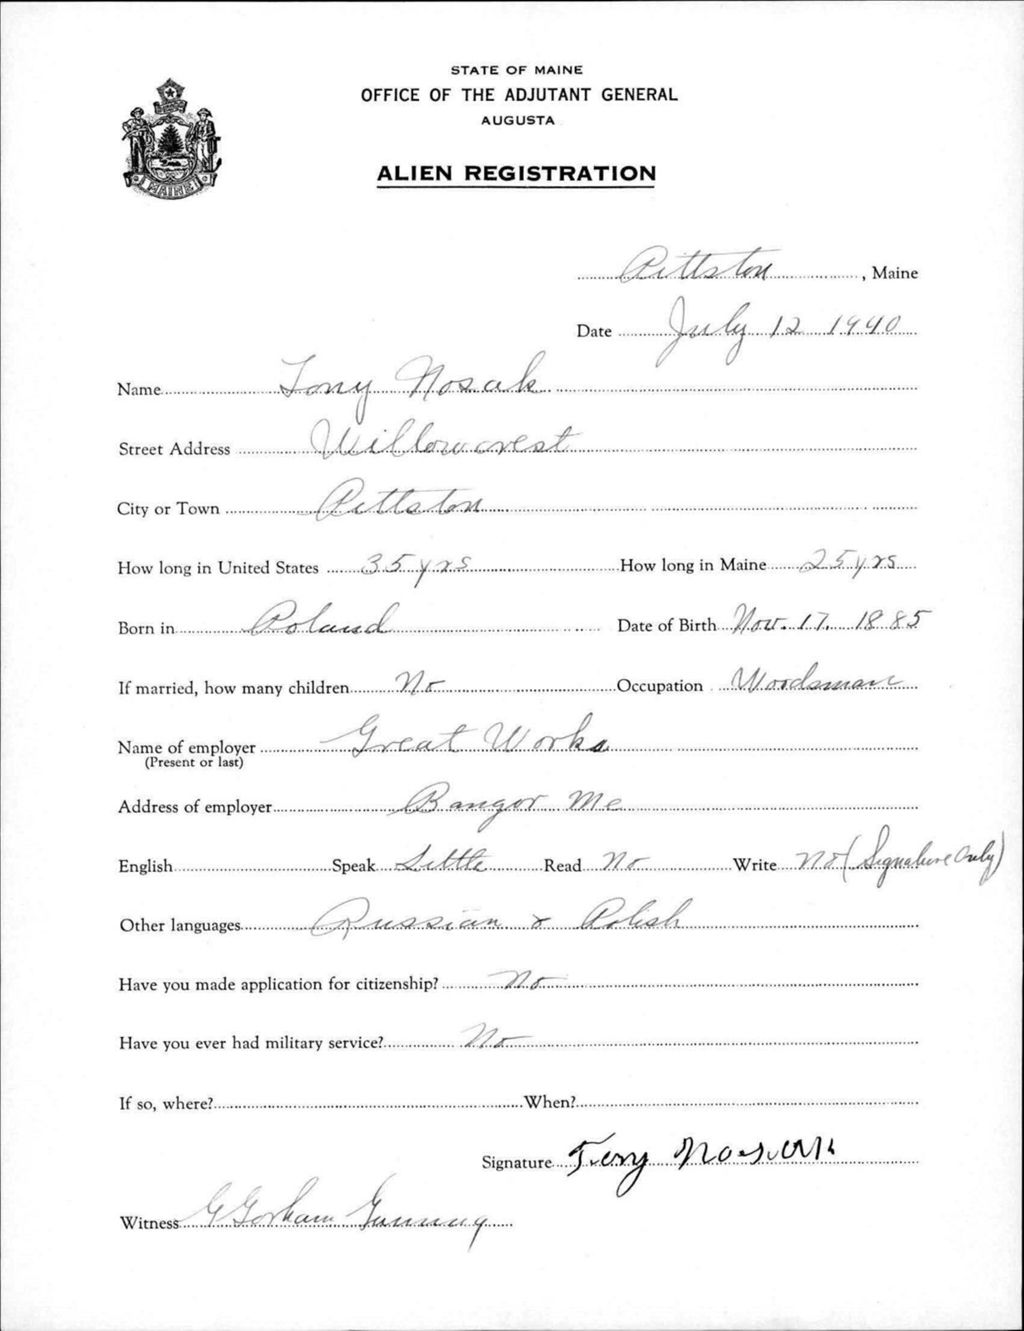 STATE OF MAINE
OFFICE OF THE ADJUTANT GENERAL
AUGUSTA
ALIEN REGISTRATION
MAINE
Pittston, Maine
Date July 12 1940
Name Tony Nosak
Street Address Willowcrest
City or Town Pittston
How long in United States 35 yrs How long in Maine 25 yrs
Born in Poland Date of Birth Nov. 17, 1885
If married, how many children No Occupation Woodsman
Name of employer Great Works
(Present or last)
Address of employer Bangor Me
English Speak Little Read No Write No (Signature Only)
Other languages Russian & Polish
Have you made application for citizenship? No
Have you ever had military service? No
If so, where? When?
Signature Tony Nosak
Witness G Gorham